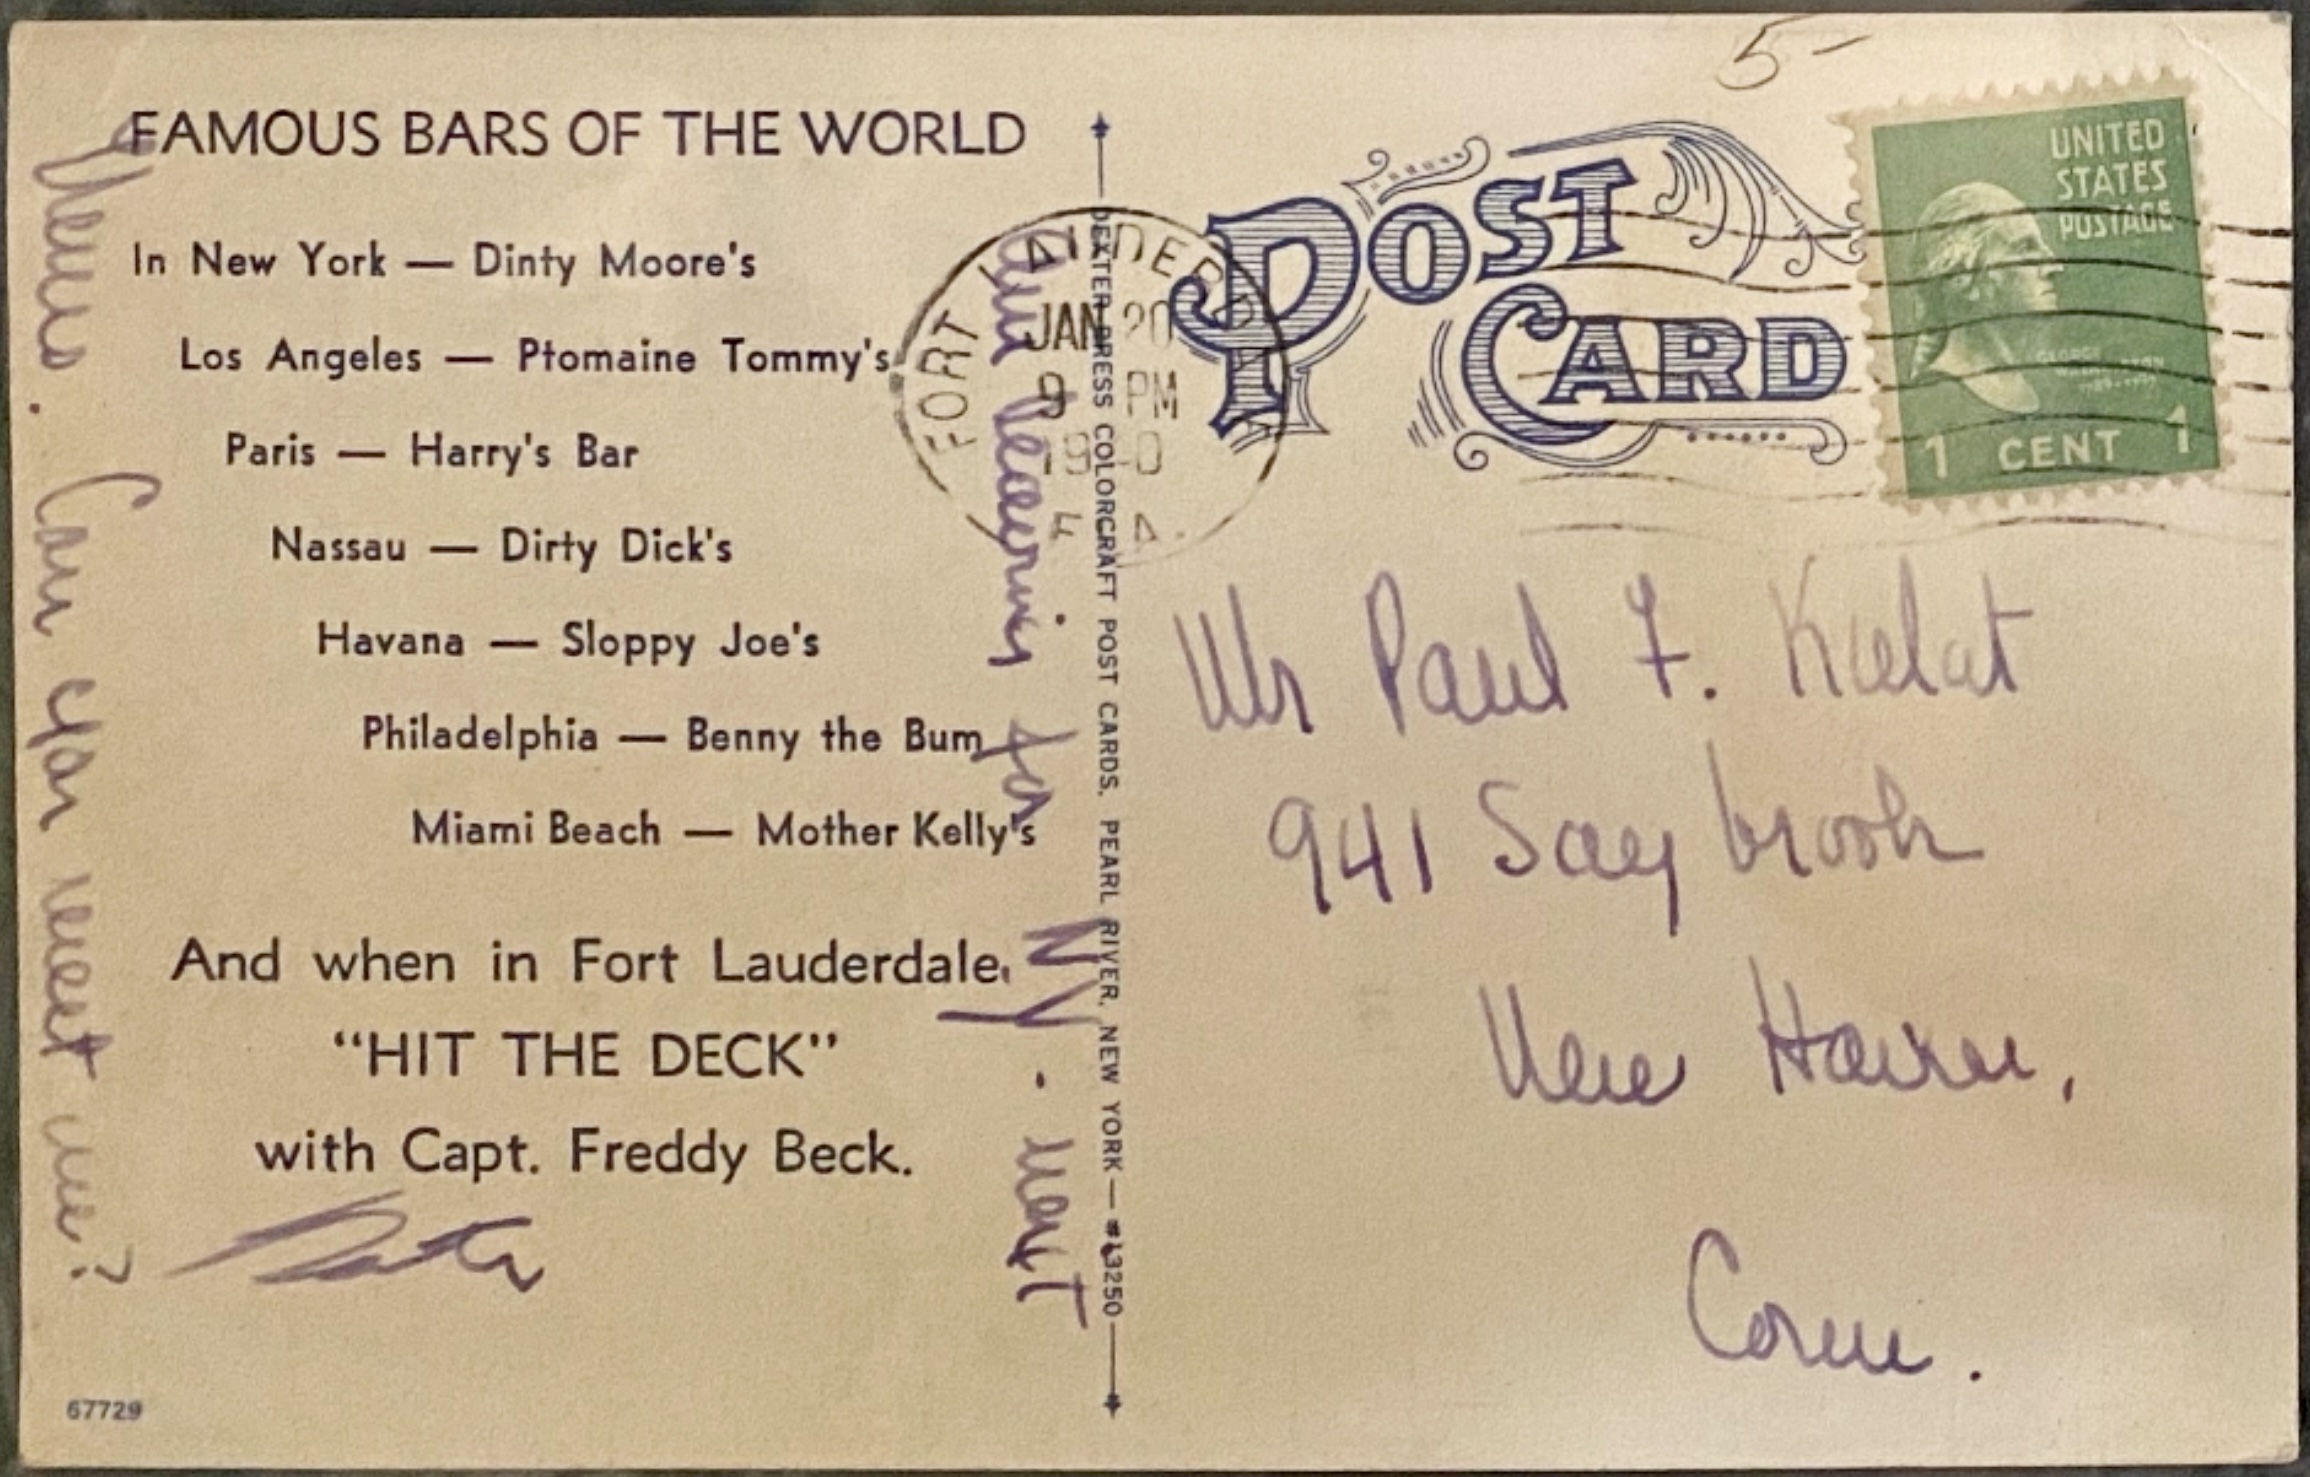 5-
FAMOUS BARS OF THE WORLD
In New York — Dinty Moore's
Los Angeles — Ptomaine Tommy's
Paris — Harry's Bar
Nassau — Dirty Dick's
Havana — Sloppy Joe's
Philadelphia — Benny the Bum
Miami Beach — Mother Kelly's
And when in Fort Lauderdale,
"HIT THE DECK"
with Capt. Freddy Beck.
67729
Am leaving for NY. next
Can you meet me?
DEXTER PRESS COLORCRAFT POST CARDS. PEARL RIVER. NEW YORK — #L3250
POST
CARD
FORT LAUDERDA
JAN 20
9 PM
UNITED
STATES
POSTAGE
GEORGE
WASHINGTON
1 CENT 1
Mr Paul F.
941 Saybrook
New Haven,
Conn.